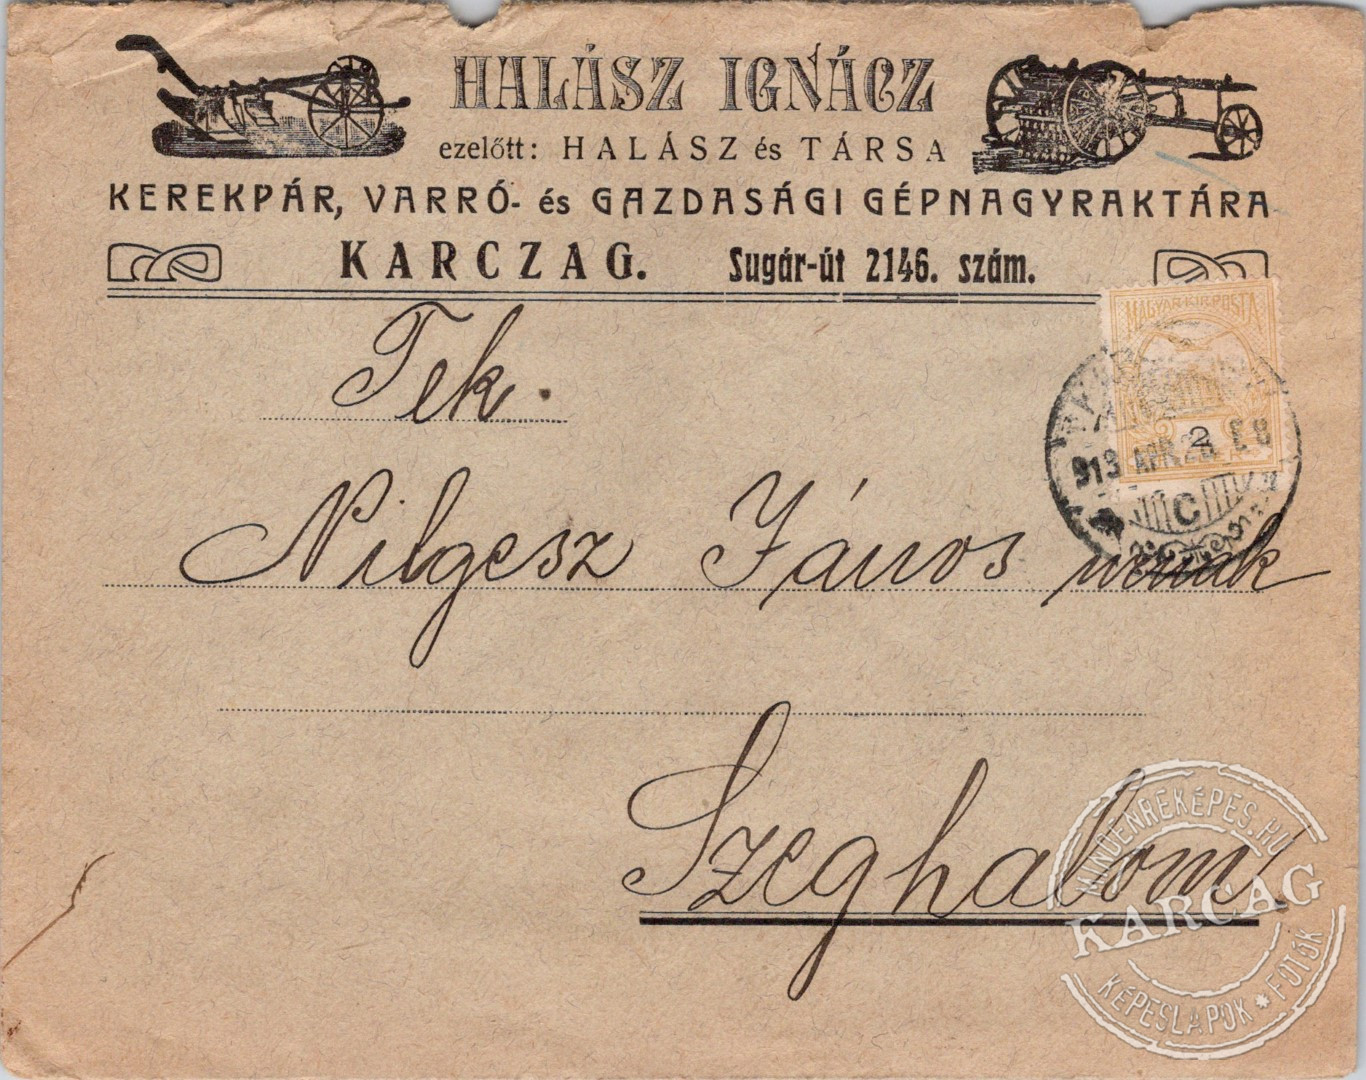 HALÁSZ IGNÁCZ
ezelőtt: HALÁSZ és TÁRSA
KEREKPÁR, VARRÓ- és GAZDASÁGI GÉPNAGYRAKTÁRA
KARCZAG. Sugár-út 2146. szám.
MAGYAR KIR. POSTA
2 2
913 APR. E 8
C
Tek.
Nilgesz János úrnak
Szeghalom
MINDENRÉKÉPES.HU
KARCAG
KÉPESLAPOK * FOTÓK